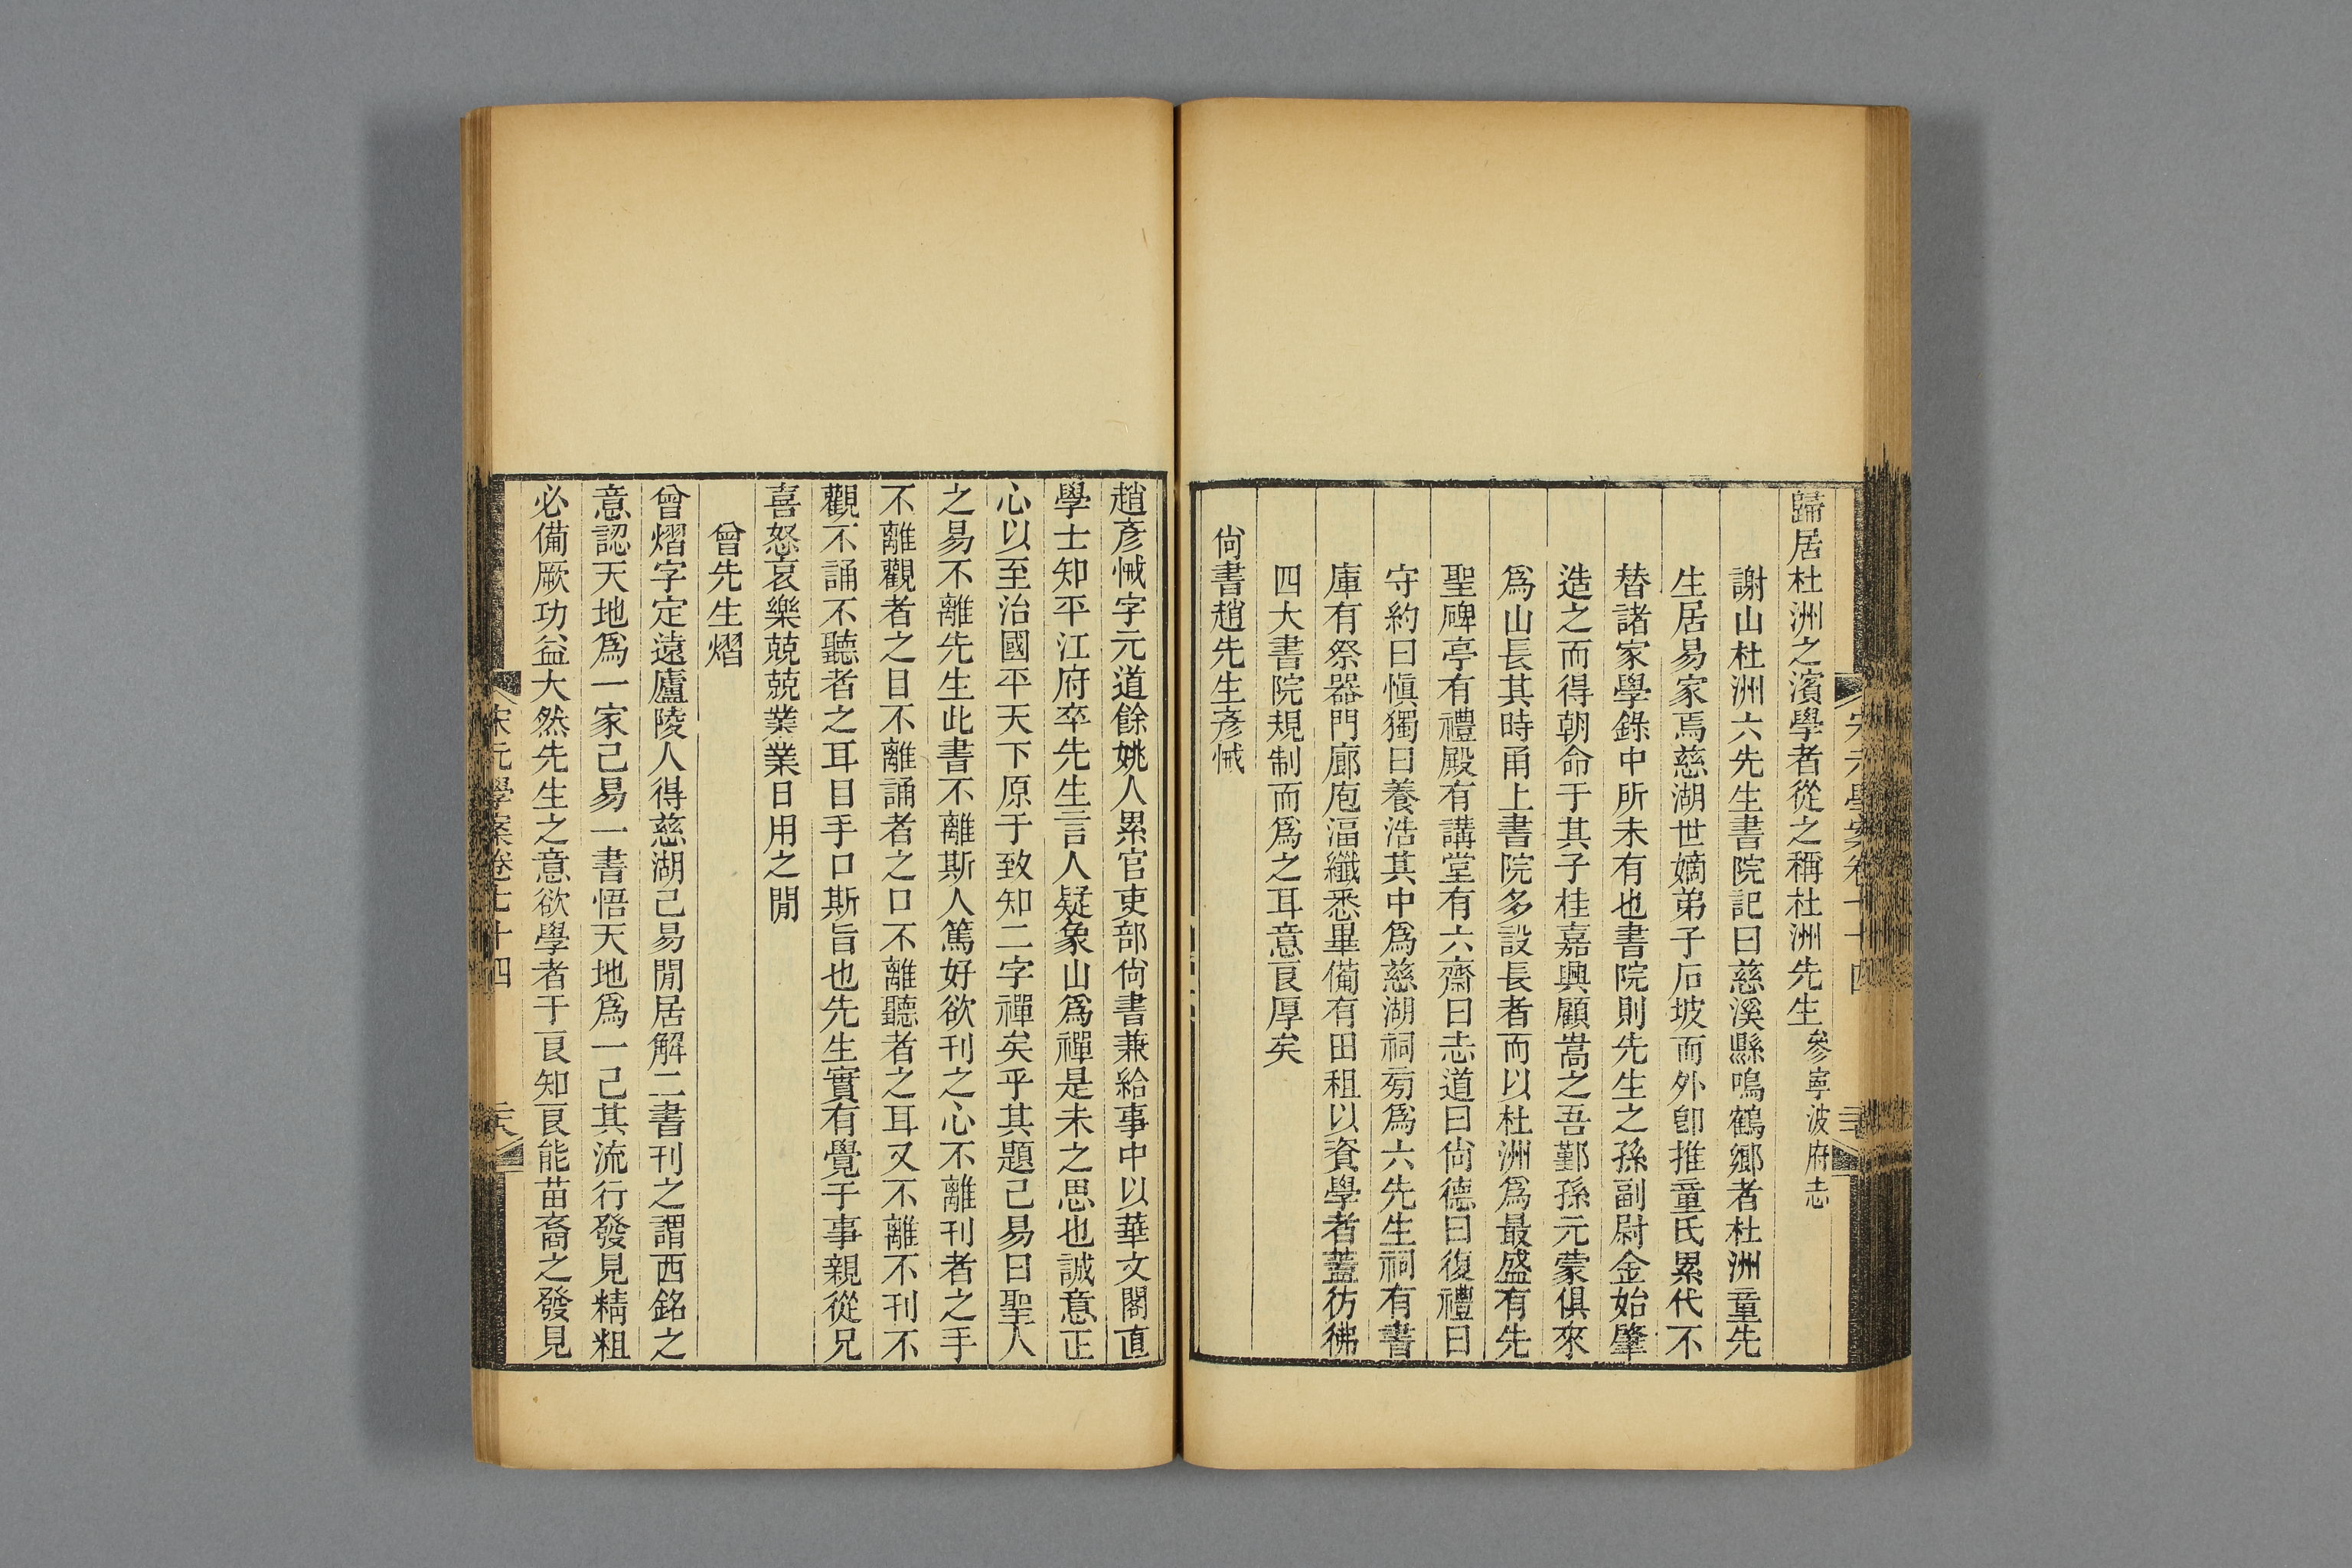 歸居杜洲之濱學者從之稱杜洲先生參寧波府志
謝山杜洲六先生書院記曰慈溪縣鳴鶴鄉者杜洲童先
生居易家焉慈湖世嫡弟子石坡而外卽推童氏累代不
替諸家學錄中所未有也書院則先生之孫副尉金始肇
造之而得朝命于其子桂嘉興顧嵩之吾鄞孫元蒙俱來
爲山長其時甬上書院多設長者而以杜洲爲最盛有先
聖碑亭有禮殿有講堂有六齋曰志道曰尙德曰復禮曰
守約曰愼獨曰養浩其中爲慈湖祠旁爲六先生祠有書
庫有祭器門廊庖湢纖悉畢備有田租以資學者蓋彷彿
四大書院規制而爲之耳意良厚矣
尙書趙先生彥悈
趙彥悈字元道餘姚人累官吏部尙書兼給事中以華文閣直
學士知平江府卒先生言人疑象山爲禪是未之思也誠意正
心以至治國平天下原于致知二字禪矣乎其題己易曰聖人
之易不離先生此書不離斯人篤好欲刊之心不離刊者之手
不離觀者之目不離誦者之口不離聽者之耳又不離不刊不
觀不誦不聽者之耳目手口斯旨也先生實有覺于事親從兄
喜怒哀樂兢兢業業日用之閒
曾先生熠
曾熠字定遠廬陵人得慈湖己易閒居解二書刊之謂西銘之
意認天地爲一家己易一書悟天地爲一己其流行發見精粗
必備厥功益大然先生之意欲學者于良知良能苗裔之發見
宋元學案卷七十四